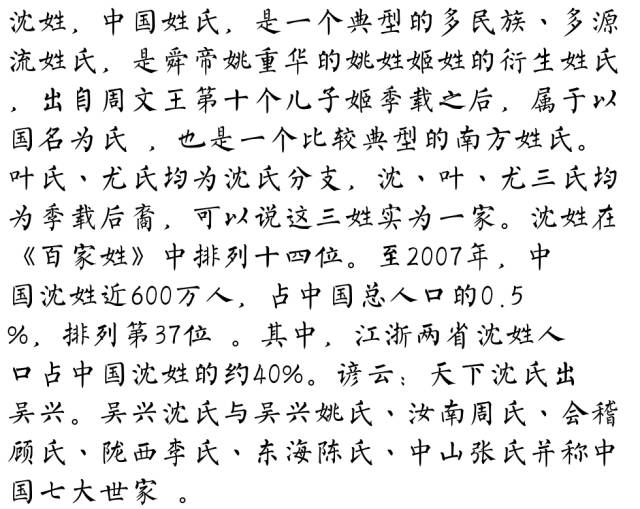 沈姓，中国姓氏，是一个典型的多民族、多源
流姓氏，是舜帝姚重华的姚姓姬姓的衍生姓氏
，出自周文王第十个儿子姬季载之后，属于以
国名为氏 ，也是一个比较典型的南方姓氏。
叶氏、尤氏均为沈氏分支，沈、叶、尤三氏均
为季载后裔，可以说这三姓实为一家。沈姓在
《百家姓》中排列十四位。至2007年，中
国沈姓近600万人，占中国总人口的0.5
%，排列第37位 。其中，江浙两省沈姓人
口占中国沈姓的约40%。谚云：天下沈氏出
吴兴。吴兴沈氏与吴兴姚氏、汝南周氏、会稽
顾氏、陇西李氏、东海陈氏、中山张氏并称中
国七大世家 。